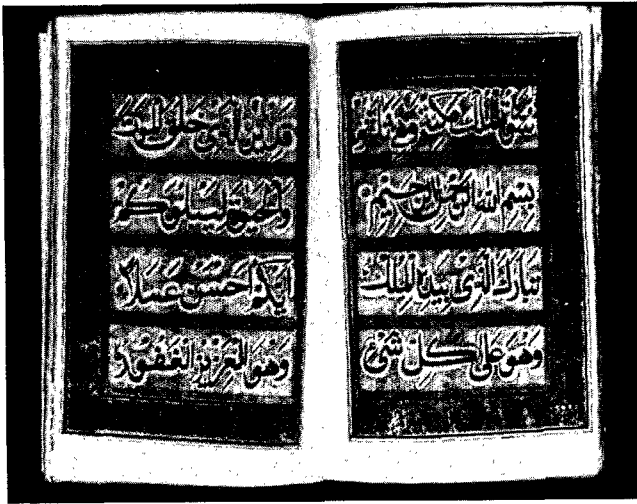 سورة الملك مكية
بسم الله الرحمن الرحيم
تبارك الذي بيده الملك
وهو على كل شئ
قدير الذي خلق الموت
والحيوة ليبلوكم
ايكم احسن عملا
وهو العزيز الغفور